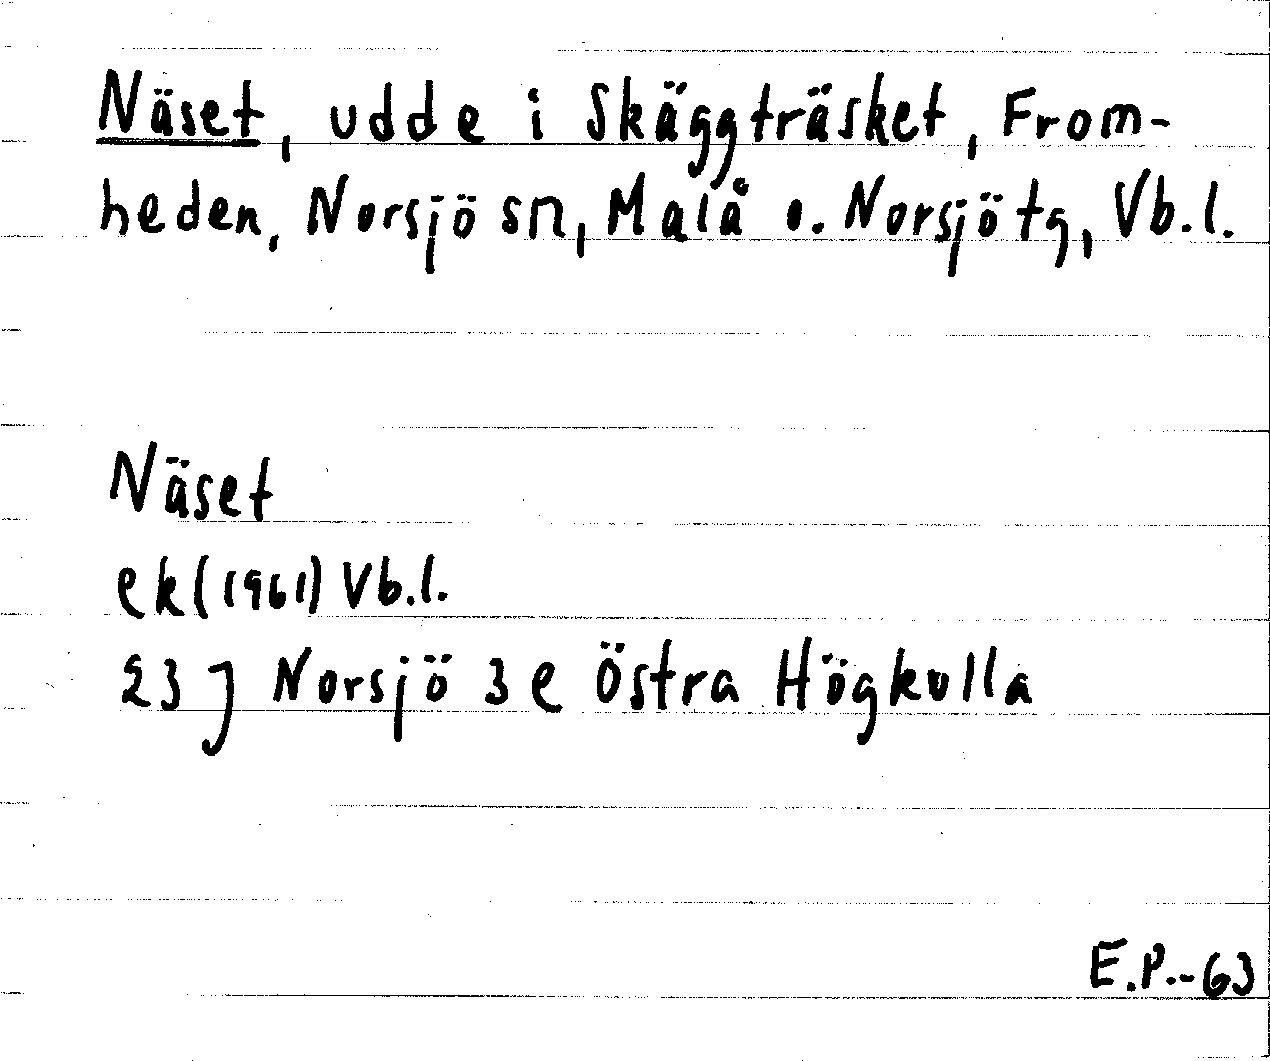 Näset, udde i Skäggträsket, From-
heden, Norsjö sn, Malå o. Norsjö tg, Vb.l.
Näset
ek (1961) Vb.l.
23 J Norsjö 3 e Östra Högkulla
E.P.-63